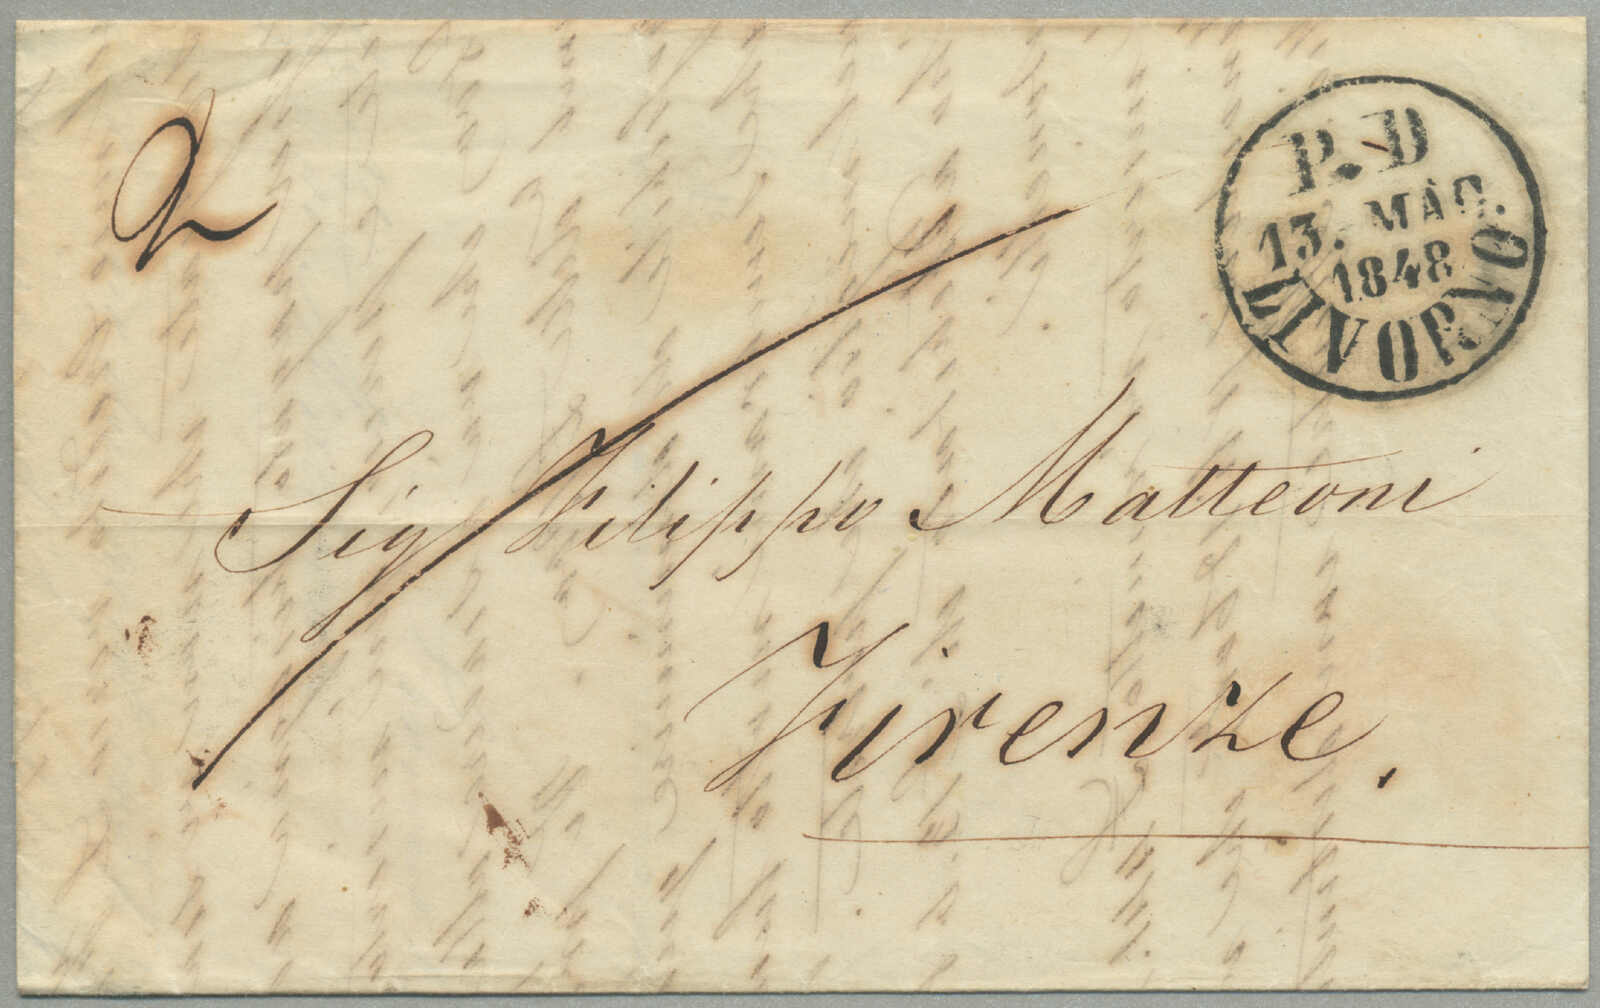 2
P.D
13. MAG.
1848
LIVORNO
Sig Filippo Matteoni
Firenze.